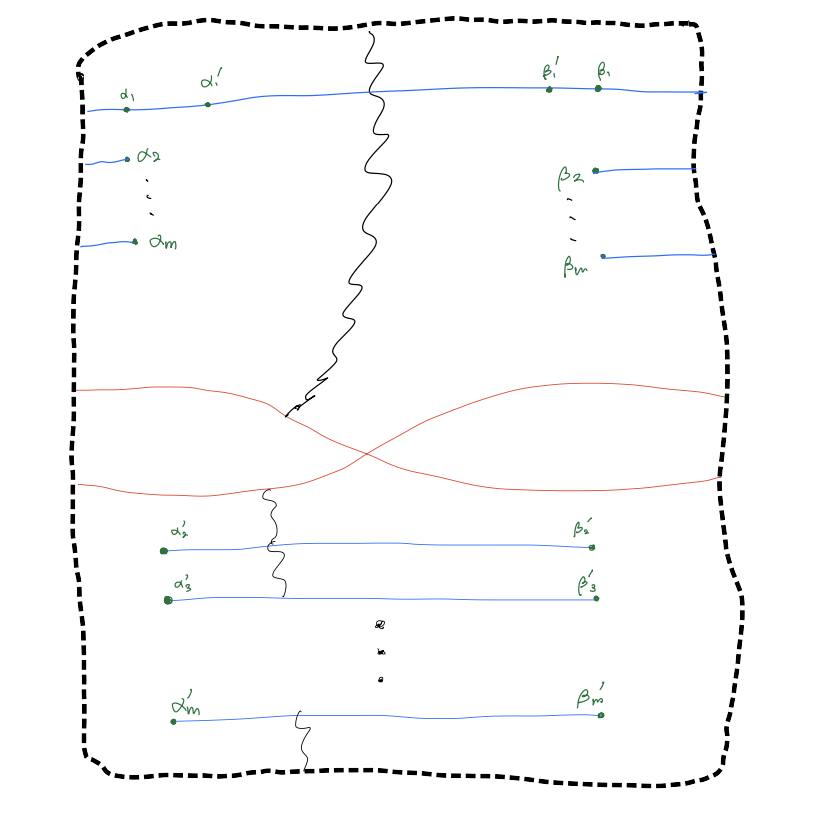 α₁ α₁′ β₁′ β₁
α₂ β₂
αₘ βₘ
α₂′ β₂′
α₃′ β₃′
αₘ′ βₘ′